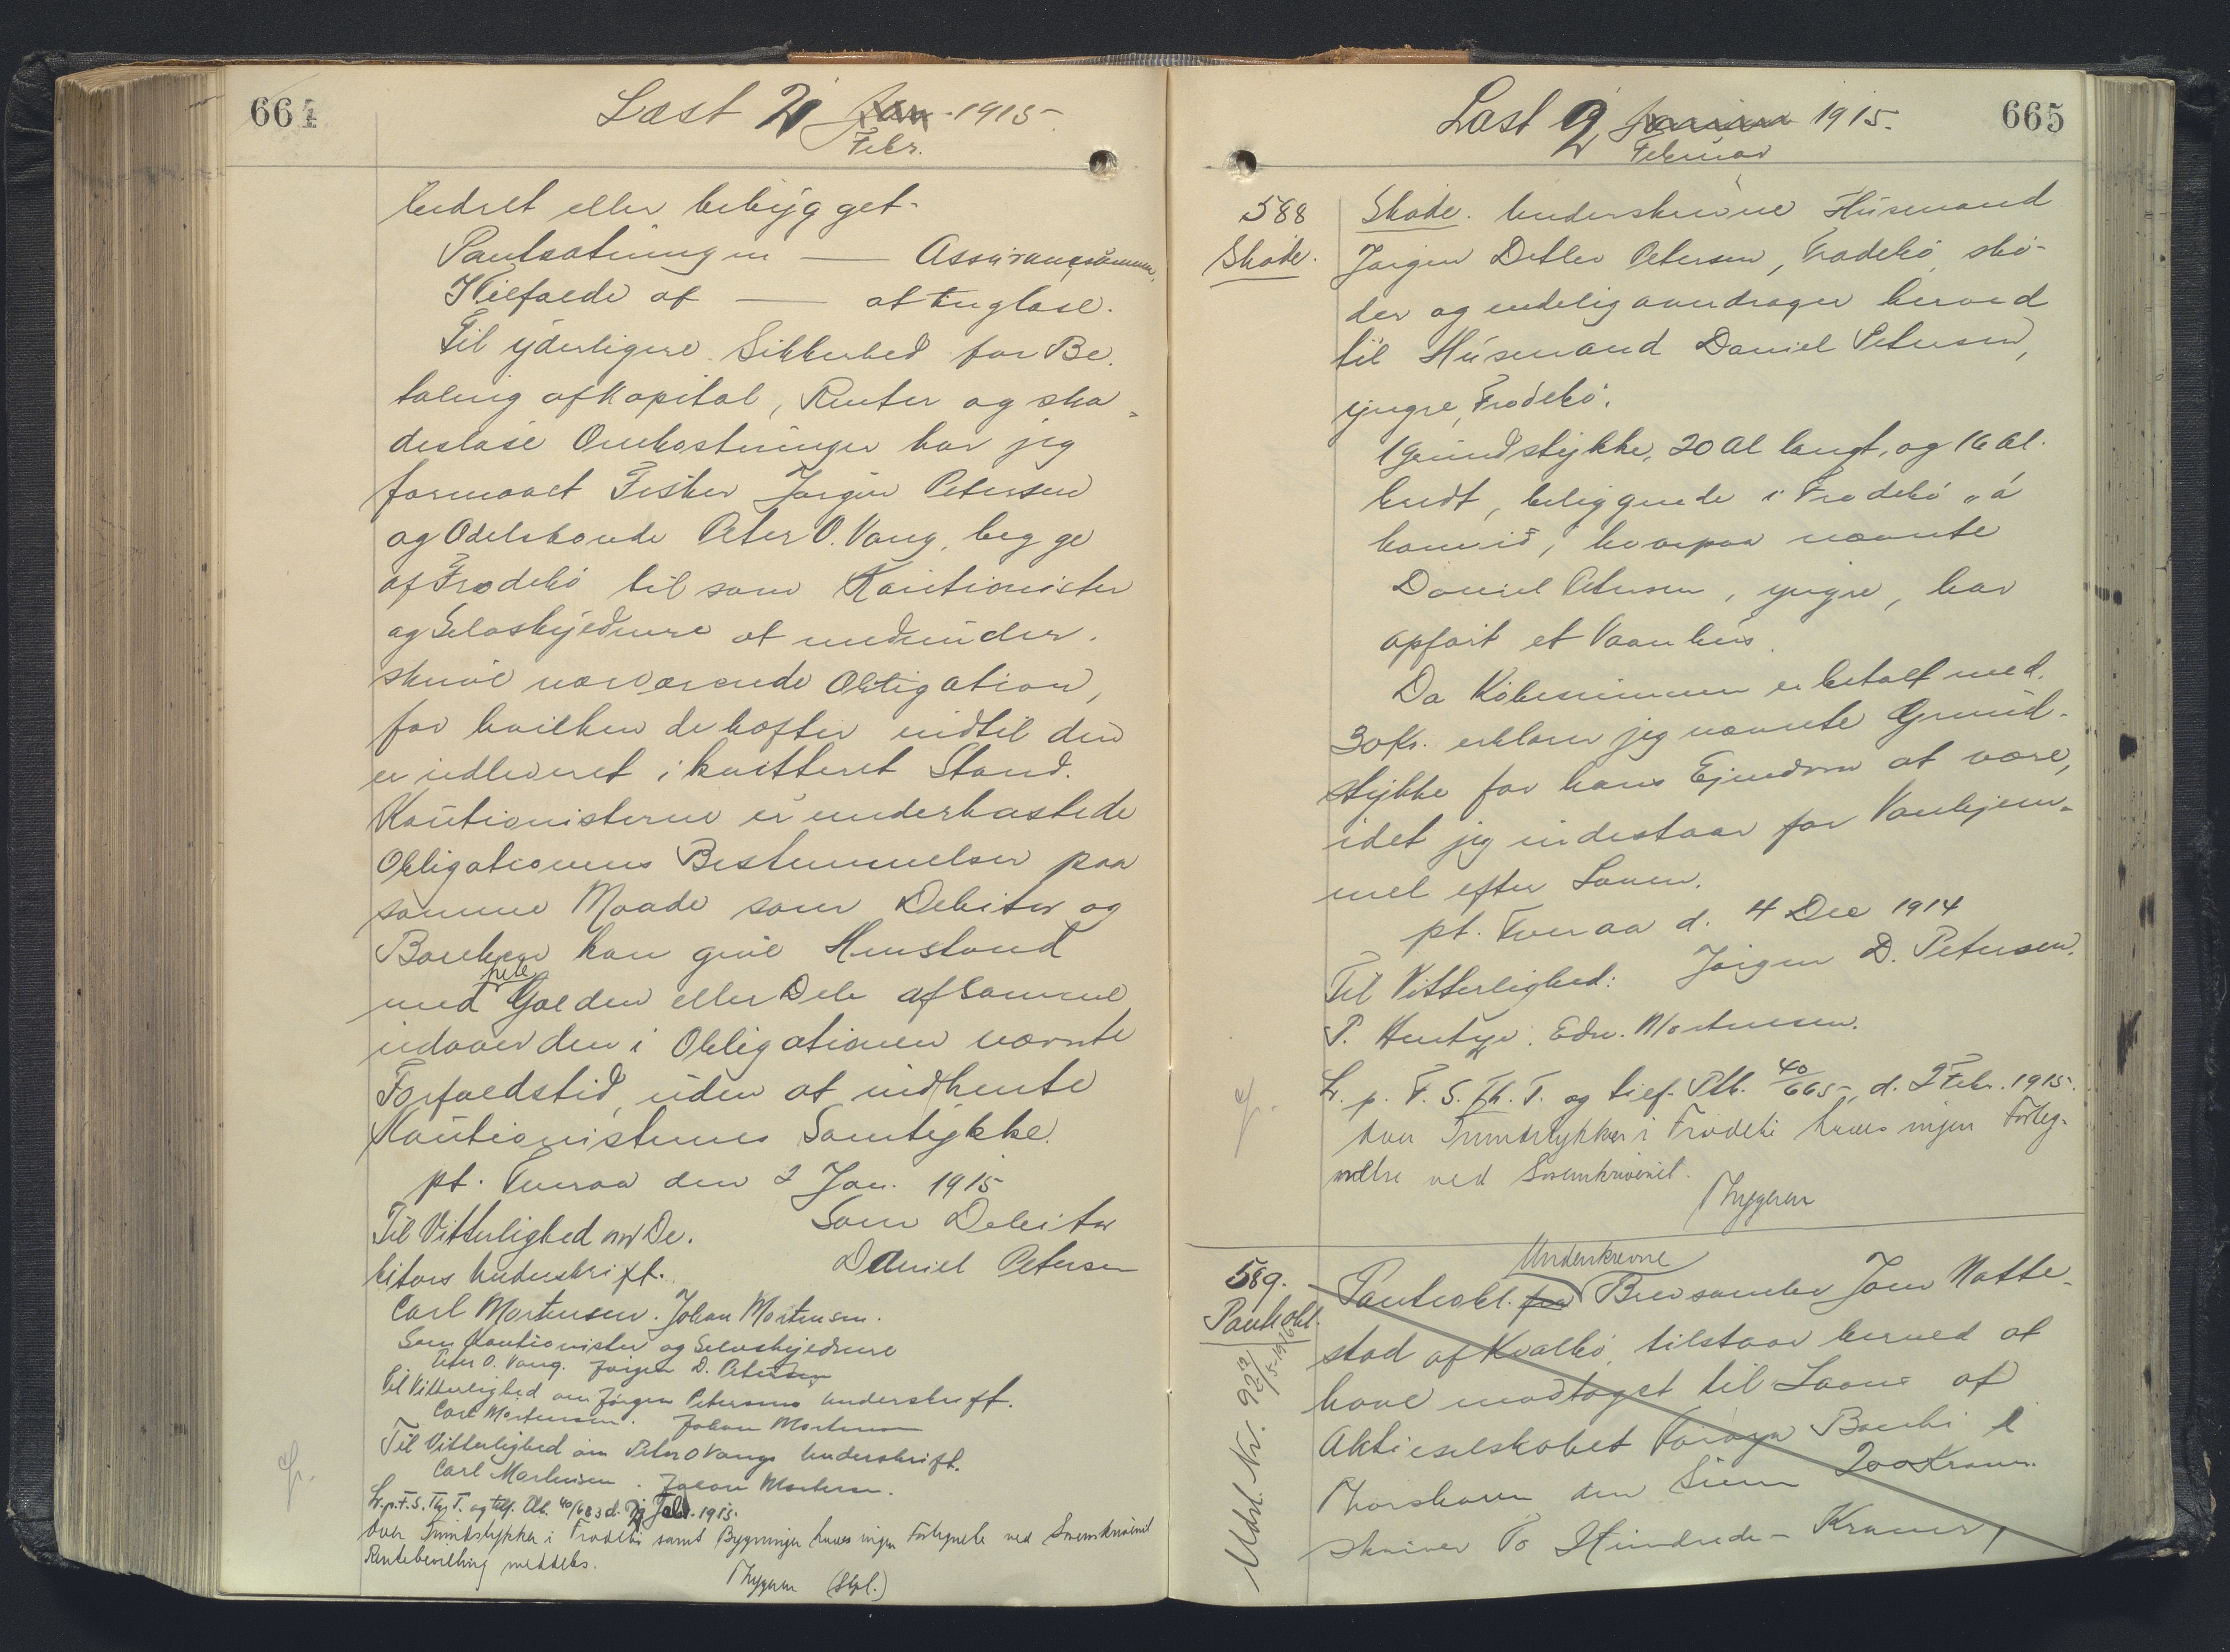 664
Læst 2 Jan. 1915.
Febr.
bedret eller bebygget.
Pantsætningen — Assurancesummen,
I Tilfælde af — at tinglæse.
Til yderligere Sikkerhed for Be-
taling af Kapital, Renter og ska-
desløse Omkostninger har jeg
formaaet Fisker Jørgen Petersen
og Odelsbonde Peter O. Vang, begge
af Frodebø til som Kautionister
og Selvskyldnere at medunder-
skrive nærværende Obligation,
for hvilken de hæfter indtil den
er udleveret i kvitteret Stand.
Kautionisterne er underkastede
Obligationens Bestemmelser paa
samme Maade som Debitor og
Banken kan give Henstand
med hele Gælden eller Dele af samme
udover den i Obligationen nævnte
Forfaldstid, uden at indhente
Kautionisternes Samtykke.
pt. Tveraa den 2 Jan. 1915
Til Vitterlighed om De-
Som Debitor
bitors Underskrift.
Daniel Petersen
Carl Mortensen. Johan Mortensen.
Som Kautionister og Selvskyldnere
Peter O. Vang. Jørgen D. Petersen
Til Vitterlighed om Jørgen Petersens Underskrift.
Carl Mortensen. Johan Mortensen
Til Vitterlighed om Peter O Vangs Underskrift.
Carl Mortensen. Johan Mortensen.
L. p. F. S. Th. T. og tilf. Ptb. 40/663 d. 2 Febr. 1915.
Over Grundstykker i Frodebø samt Bygninger haves ingen Forlegnelse ved Sorenskriveriet
Rentebevilling meddeles.
Thygesen (Stpl.)
665
Læst 2 Januar 1915.
Februar
588
Skøde.
Skøde. Underskrevne Husmand
Jørgen Detlev Petersen, Frodebø, skø-
der og endelig overdrager herved
til Husmand Daniel Petersen,
yngre, Frodebø.
1 Grundstykke, 20 Al langt, og 16 Al.
bredt, beliggende i Frodebø "á
, hvorpaa nævnte
Daniel Petersen, yngre, har
opført et Vaanhus.
Da Købesummen er betalt med
30 Kr. erklærer jeg nævnte Grund-
stykke for hans Ejendom at være,
idet jeg indestaar for Vanhjem-
mel efter Loven.
pt. Tveraa d. 4 Dec 1914
Jørgen D. Petersen.
Til Vitterlighed:
P. Hentze. Edw. Mortensen.
L. p. F. S. Th. T. og tilf. Ptb. 40/665, d. 2 Febr. 1915.
Over Grundstykker i Frodebø haves ingen Forleg-
nelse ved Sorenskriveriet.
Thygesen
589.
Pantobl.
Udsl. Nr. 922
Underskrevne
Panteobl. fra Brevsamler Joen Matte-
stad af Kvalbø, tilstaar herved at
have modtaget til Laans af
Aktieselskabet Førøya Banki í
Thorshavn den Sum 200 Kroner
skriver To Hundrede – Kroner,